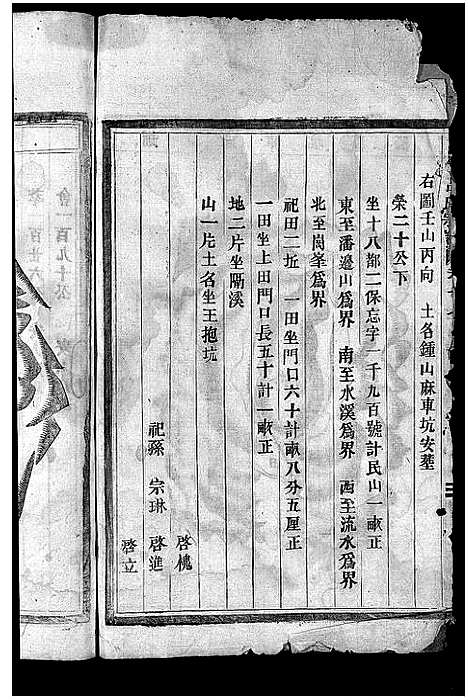 右圖壬山丙向　土名鍾山麻車坑安塟
榮二十公下
坐十八都二保忘字一千九百號計民山一畝正
東至潘邊山爲界　南至水溪爲界　西至流水爲界
北至崗峯爲界
祀田二坵　一田坐門口六十計畝八分五厘正
一田坐上田門口長五十計一畝正
地二片坐隔溪
山一片土名坐王抱坑
啓槐
祀孫　宗琳　啓進
啓立